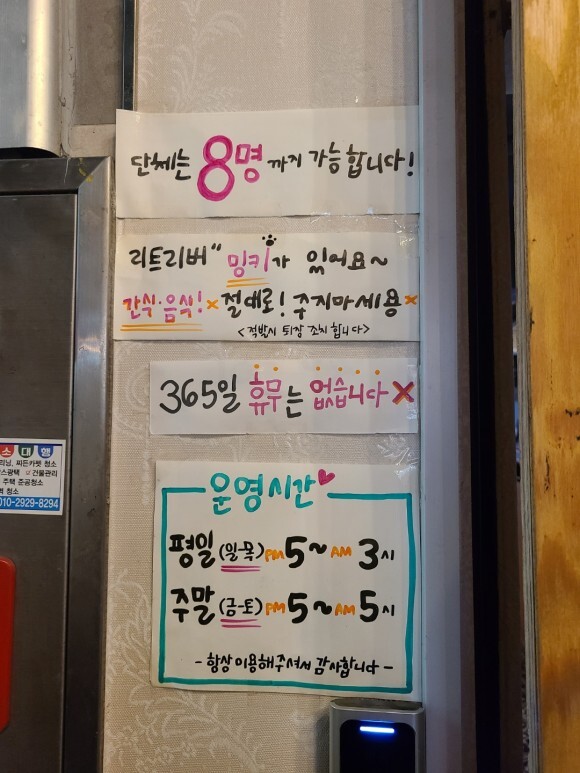 단체는 8명까지 가능합니다!
리트리버" 밍키가 있어요~
간식·음식! × 절대로! 주지마세용 ×
<적발시 퇴장 조치 합니다>
365일 휴무는 없습니다 ×
운영시간
평일 (일-목) PM 5 ~ AM 3시
주말 (금-토) PM 5 ~ AM 5시
- 항상 이용해주셔서 감사합니다 -
소대행
리닝, 찌든카펫 청소
스광택 건물관리
주택 준공청소
청소
010-2929-8294